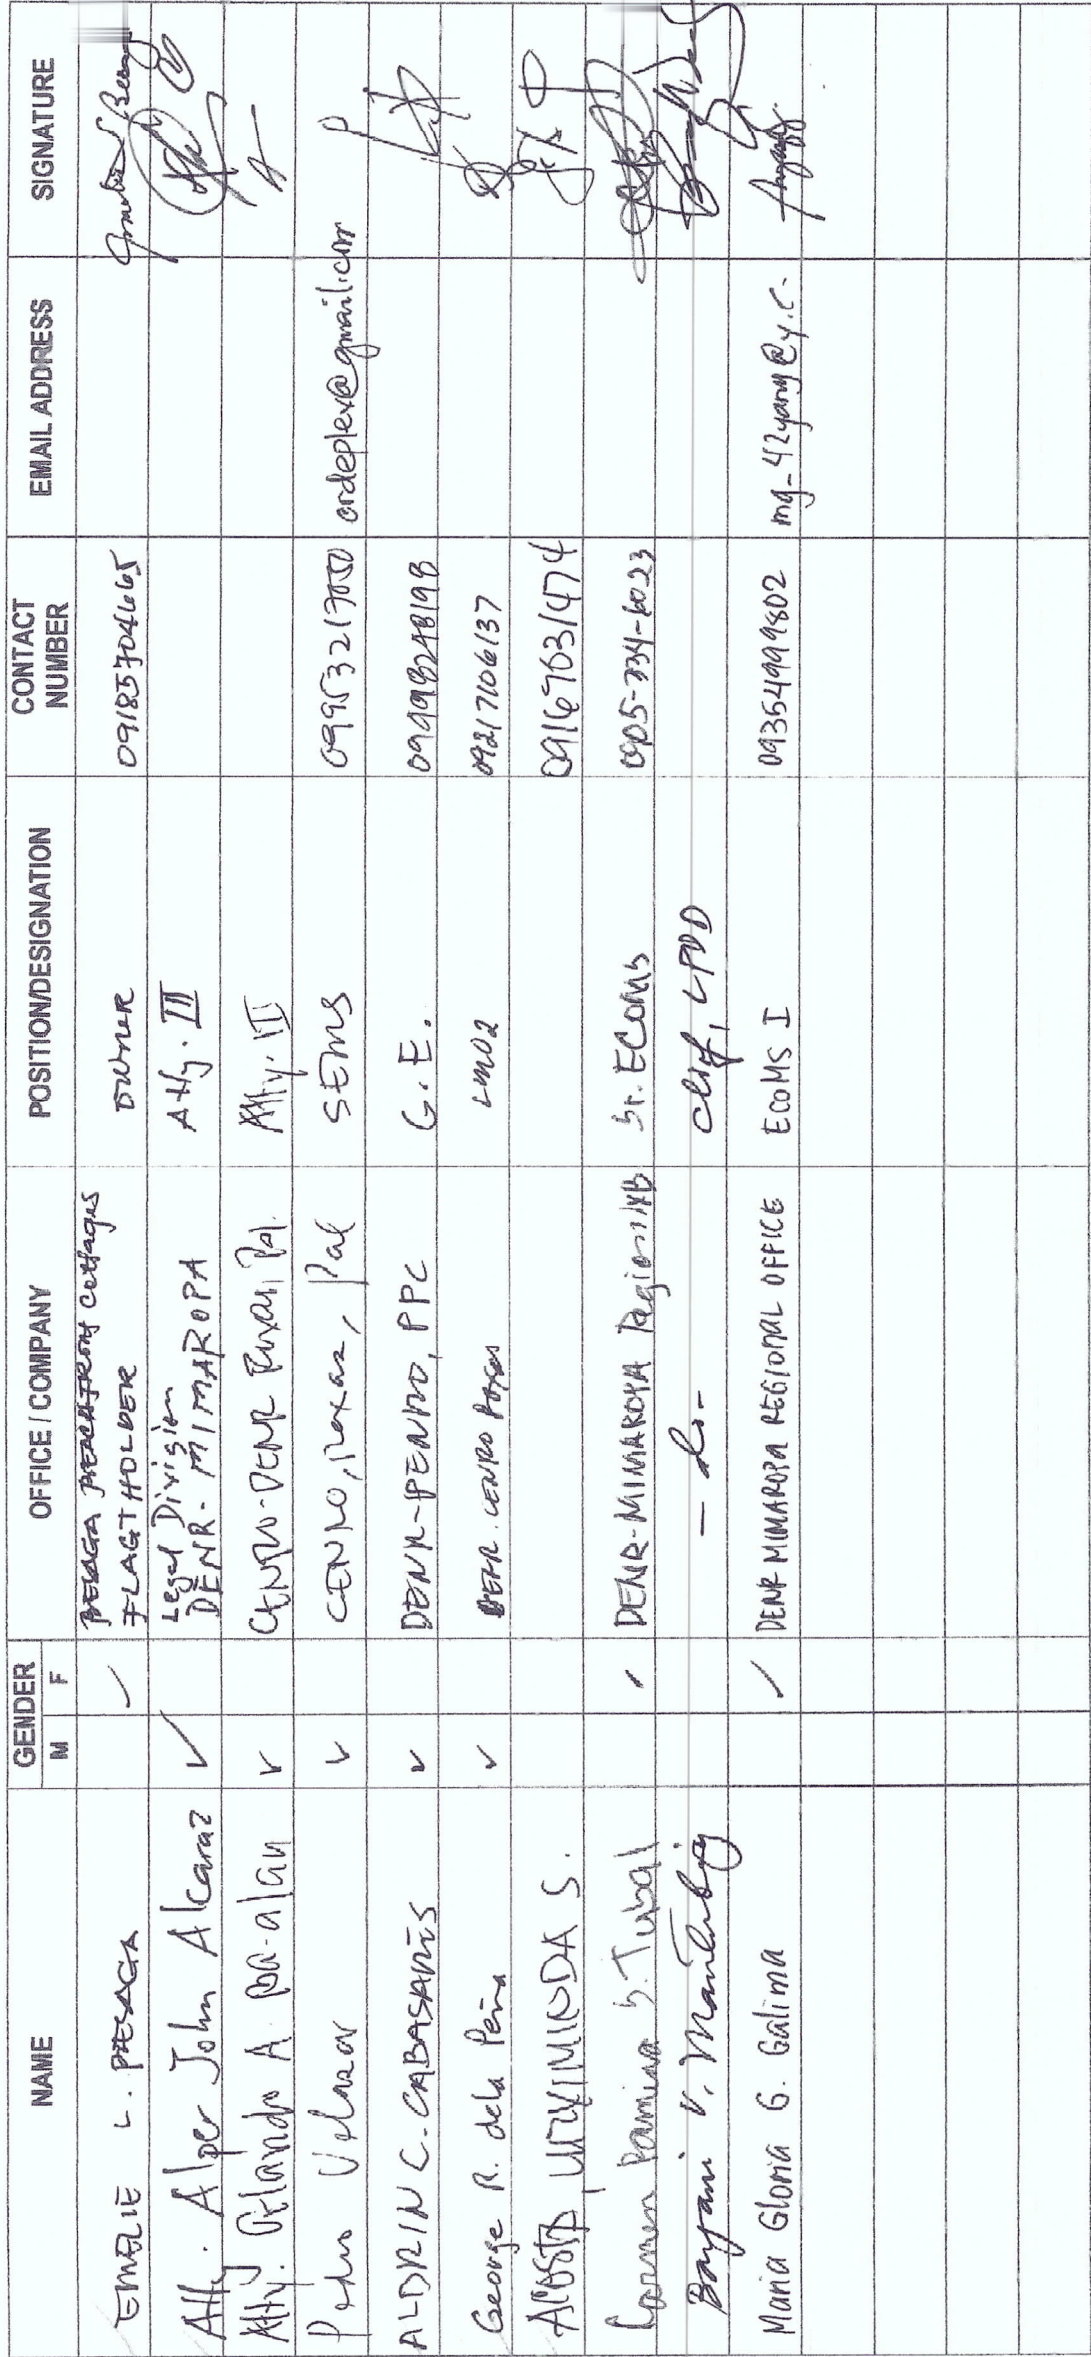 NAME GENDER OFFICE / COMPANY POSITION/DESIGNATION CONTACT NUMBER EMAIL ADDRESS SIGNATURE
M F
EMELIE L. BESAGA ✓ BESAGA BEACHFRONT Cottages OWNER 09185704665
FLAGT HOLDER
Atty. Alper John Alcaraz ✓ Legal Division Atty. III
DENR - MIMAROPA
Atty. Orlando A. Ba-alan ✓ CENRO-DENR Roxas, Pal. Atty. III
Pedro Velasco ✓ CENRO, Roxas, Pal SEMS 09953217050 ordeplex@gmail.com
ALDRIN C. CABASARES ✓ DENR-PENRO, PPC G.E.
George R. dela Peña ✓ DENR. CENRO Roxas LMO2 09217106137
ACOSTA, LUZVIMINDA S. 09169031474
Carmen Ramina S. Tubal ✓ DENR-MIMAROPA Region IVB Sr. ECOMS 0905-334-6023
Bayani V. - do - Chief, LPDD
Maria Gloria G. Galima ✓ DENR MIMAROPA REGIONAL OFFICE EcoMS I 09354999802 mg_42yang@y.c.